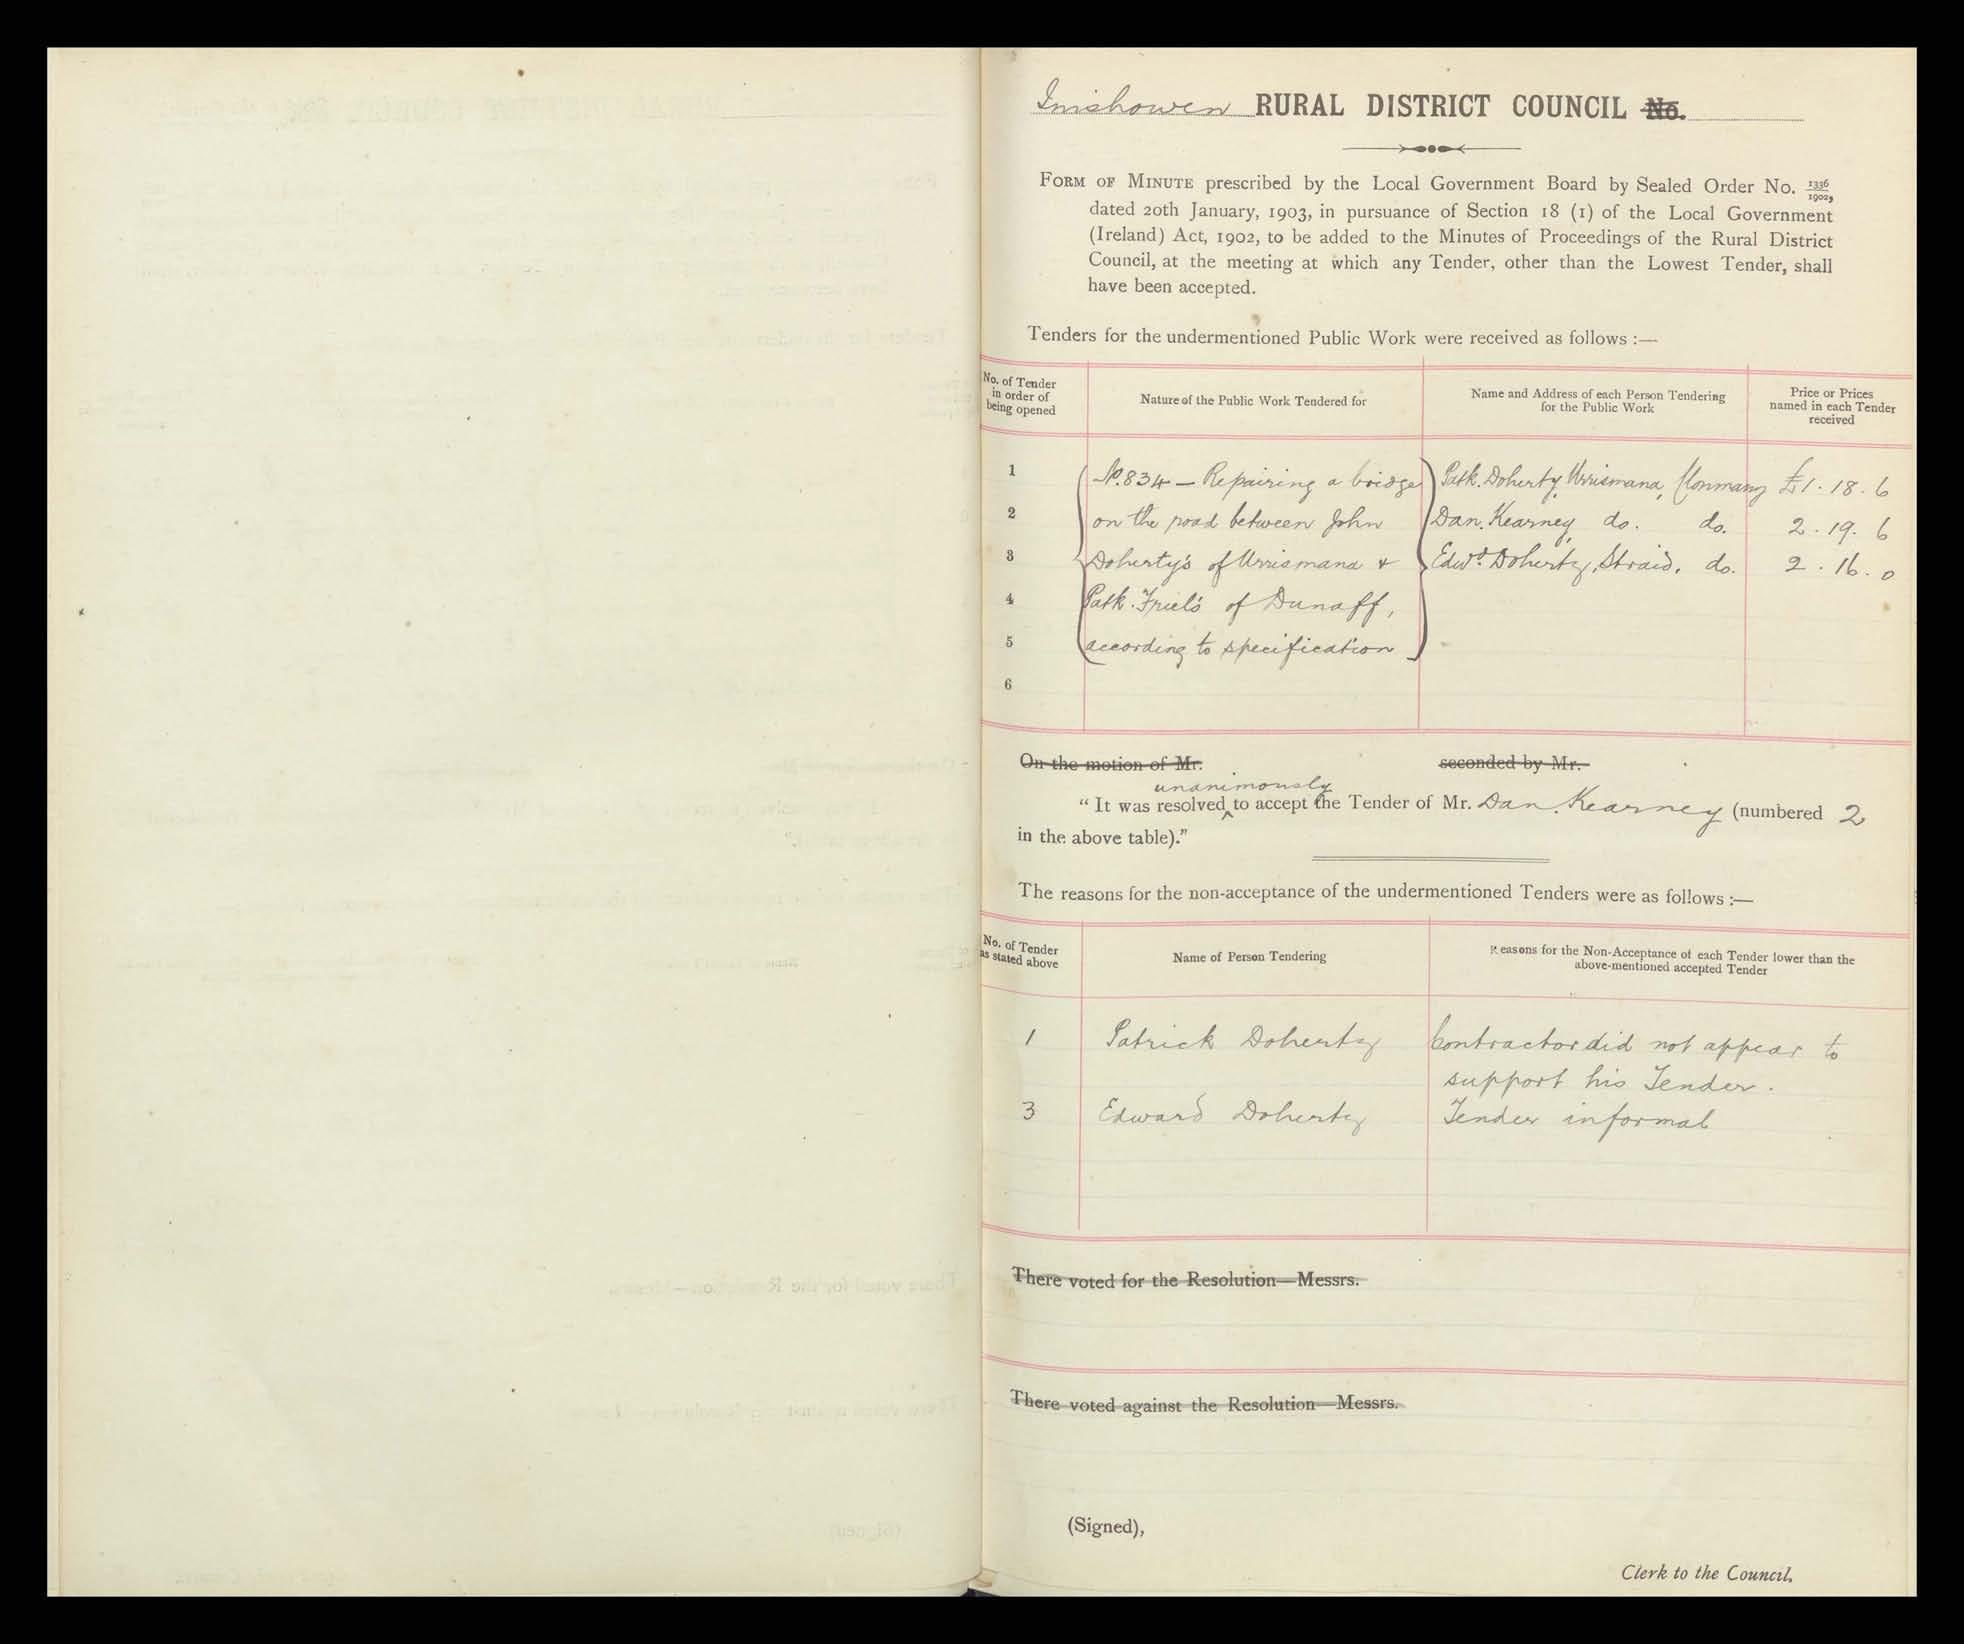 Inishowen RURAL DISTRICT COUNCIL No.
FORM OF MINUTE prescribed by the Local Government Board by Sealed Order No. 1336/1902,
dated 20th January, 1903, in pursuance of Section 18 (1) of the Local Government
(Ireland) Act, 1902, to be added to the Minutes of Proceedings of the Rural District
Council, at the meeting at which any Tender, other than the Lowest Tender, shall
have been accepted.
Tenders for the undermentioned Public Work were received as follows :—
No. of Tender
in order of
being opened
Nature of the Public Work Tendered for
Name and Address of each Person Tendering
for the Public Work
Price or Prices
named in each Tender
received
1 No. 834 — Repairing a bridge Patk. Doherty, Urrismana, Clonmany £1 . 18 . 6
2 on the road between John Dan. Kearney do. do. 2 . 19 . 6
3 Doherty's of Urrismana & Edwd. Doherty, Straid, do. 2 . 16 . 0
4 Patk. Friel's of Dunaff,
5 according to specification
6
On the motion of Mr. seconded by Mr.
unanimously
“ It was resolved ‸ to accept the Tender of Mr. Dan. Kearney (numbered 2
in the above table).”
The reasons for the non-acceptance of the undermentioned Tenders were as follows :—
No. of Tender
as stated above
Name of Person Tendering
Reasons for the Non-Acceptance of each Tender lower than the
above-mentioned accepted Tender
1 Patrick Doherty Contractor did not appear to
support his Tender.
3 Edward Doherty Tender informal
There voted for the Resolution—Messrs.
There voted against the Resolution—Messrs.
(Signed),
Clerk to the Council.